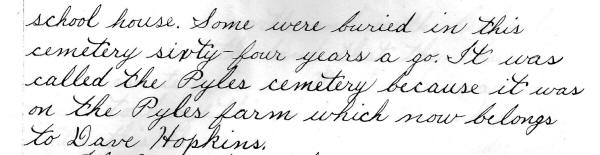 school house. Some were buried in this
cemetery sixty-four years a go. It was
called the Pyles cemetery because it was
on the Pyles farm which now belongs
to Dave Hopkins.